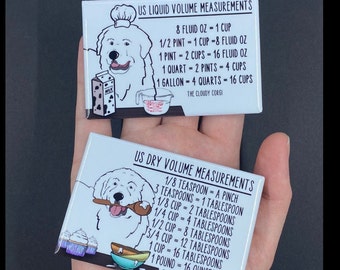 US LIQUID VOLUME MEASUREMENTS
8 FLUID OZ = 1 CUP
1/2 PINT = 1 CUP = 8 FLUID OZ
1 PINT = 2 CUPS = 16 FLUID OZ
1 QUART = 2 PINTS = 4 CUPS
1 GALLON = 4 QUARTS = 16 CUPS
THE CLOUDY CORGI
US DRY VOLUME MEASUREMENTS
1/8 TEASPOON = A PINCH
TEASPOONS = 1 TABLESPOON
1/8 CUP = 2 TABLESPOONS
1/4 CUP = 4 TABLESPOONS
1/2 CUP = 8 TABLESPOONS
3/4 CUP = 12 TABLESPOONS
CUP = 16 TABLESPOONS
1 POUND = 16